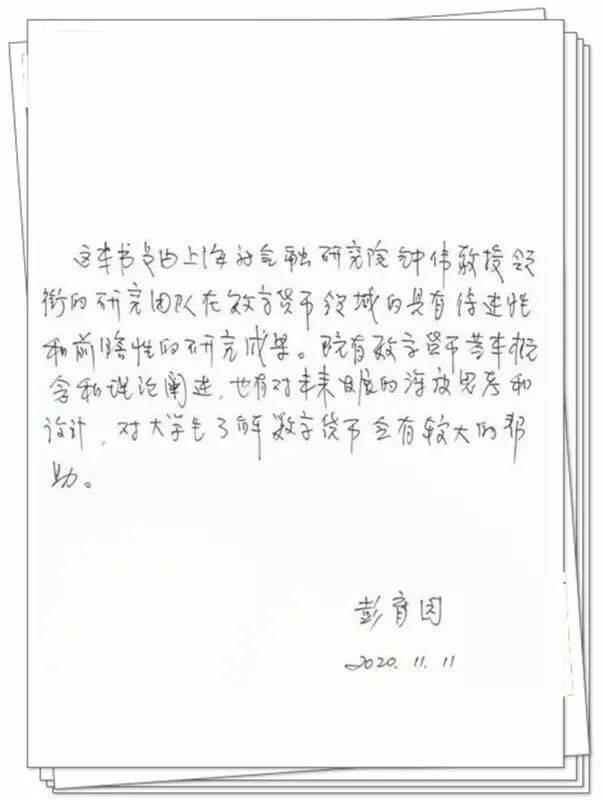 这本书是由上海新金融研究院钟伟教授领
衔的研究团队在数字货币领域的具有
和前瞻性的研究成果。既有数字货币基本概
念和理论阐述,也有对未来发展的深度思考和
设计,对大学生了解数字货币会有较大的帮
助。
2020.11.11